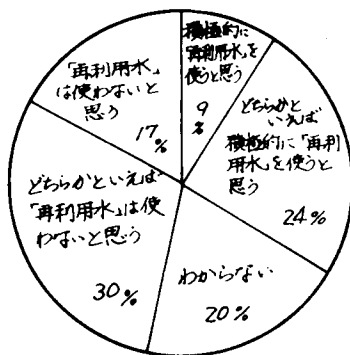 積極的に
「再利用水」を
使うと思う
9
%
どちらかと
いえば
積極的に「再利
用水」を使うと
思う
24%
わからない
20%
どちらかといえば
「再利用水」は使
わないと思う
30%
「再利用水」
は使わないと
思う
17
%